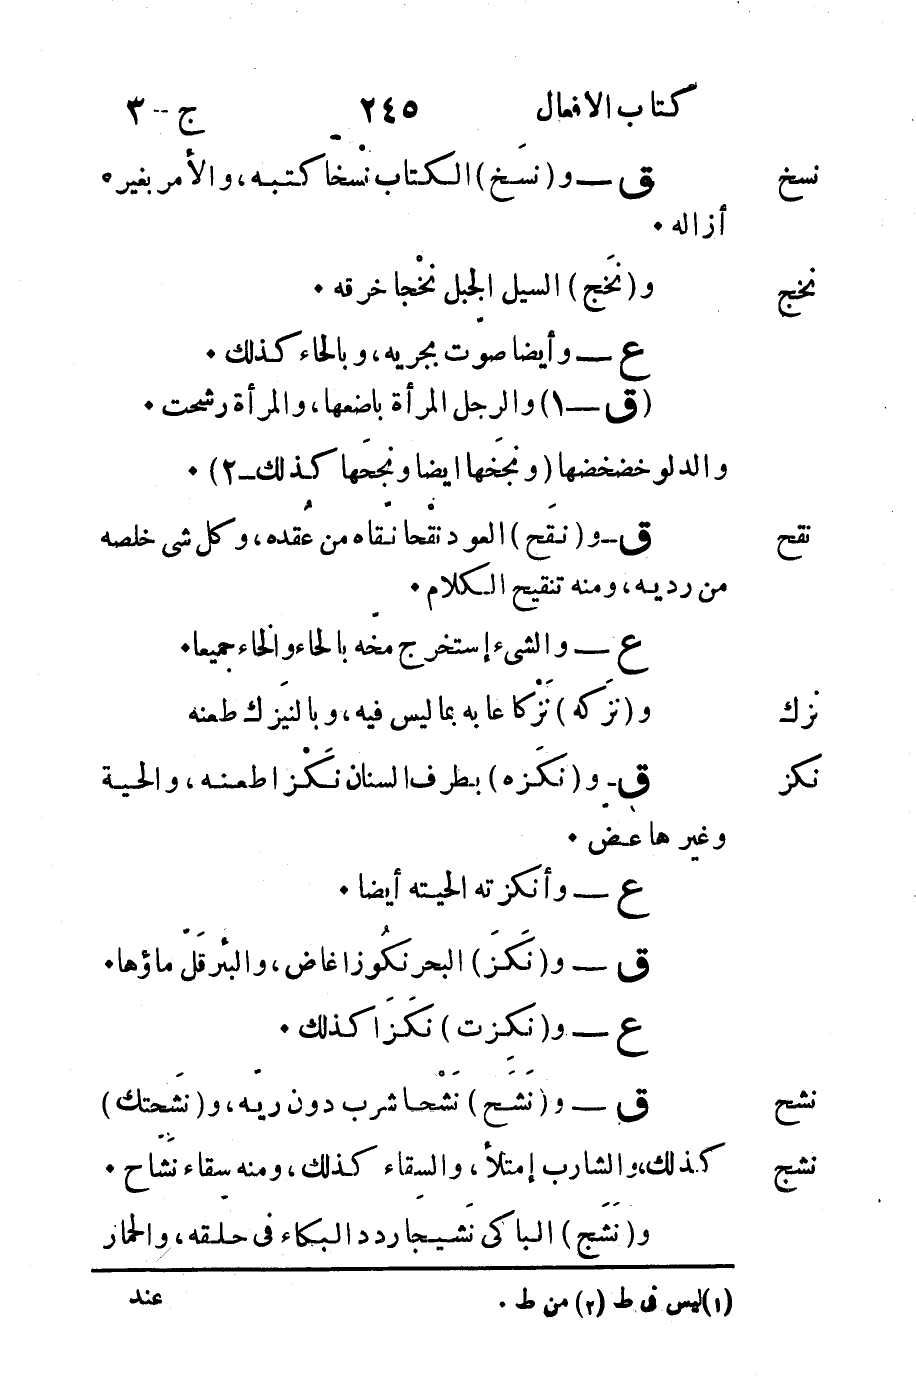 كتاب الافعال ٢٤٥ ج -- ٣
نسخ ق — و (نسَخ) الكتاب نسْخا كتبه، والأمر بغيره
أزاله ٠
نخج و (نخَج) السيل الجبل نخْجا خرقه ٠
ع — وأيضا صوّت بجريه، وبالحاء كذلك ٠
(ق — ١) والرجل المرأة باضعها، والمرأة رشحت ٠
والدلو خضخضها (ونمجَخها ايضا ونمجَحها كذلك — ٢) ٠
نقح ق — و (نقَح) العود نقْحا نقّاه من عُقده، وكل شى خلصه
من رديه، ومنه تنقيح الكلام ٠
ع — والشىء إستخرج مخّه بالحاء والخاء جميعا ٠
نزك و (نزَكه) نزْكا عابه بما ليس فيه، وبالنيَزك طعنه
نكز ق - و (نكَزه) بطرف السنان نكْزا طعنه، والحية
وغيرها عض ٠
ع — وأنكزته الحيته أيضا ٠
ق — و (نَكَز) البحر نكُوزا غاض، والبئر قلّ ماؤها ٠
ع — و (نكزت) نَكَزا كذلك ٠
نشح ق — و (نَشَح) نَشْحا شرب دون ريّه، و (نشَحتك)
نشج كذلك، والشارب إمتلأ، والسقاء كذلك، ومنه سقاء نشّاح ٠
و (نَشَج) الباكى نشَيجا ردد البكاء فى حلقه، والحمار
(١) ليس فى ط (٢) من ط ٠ عند